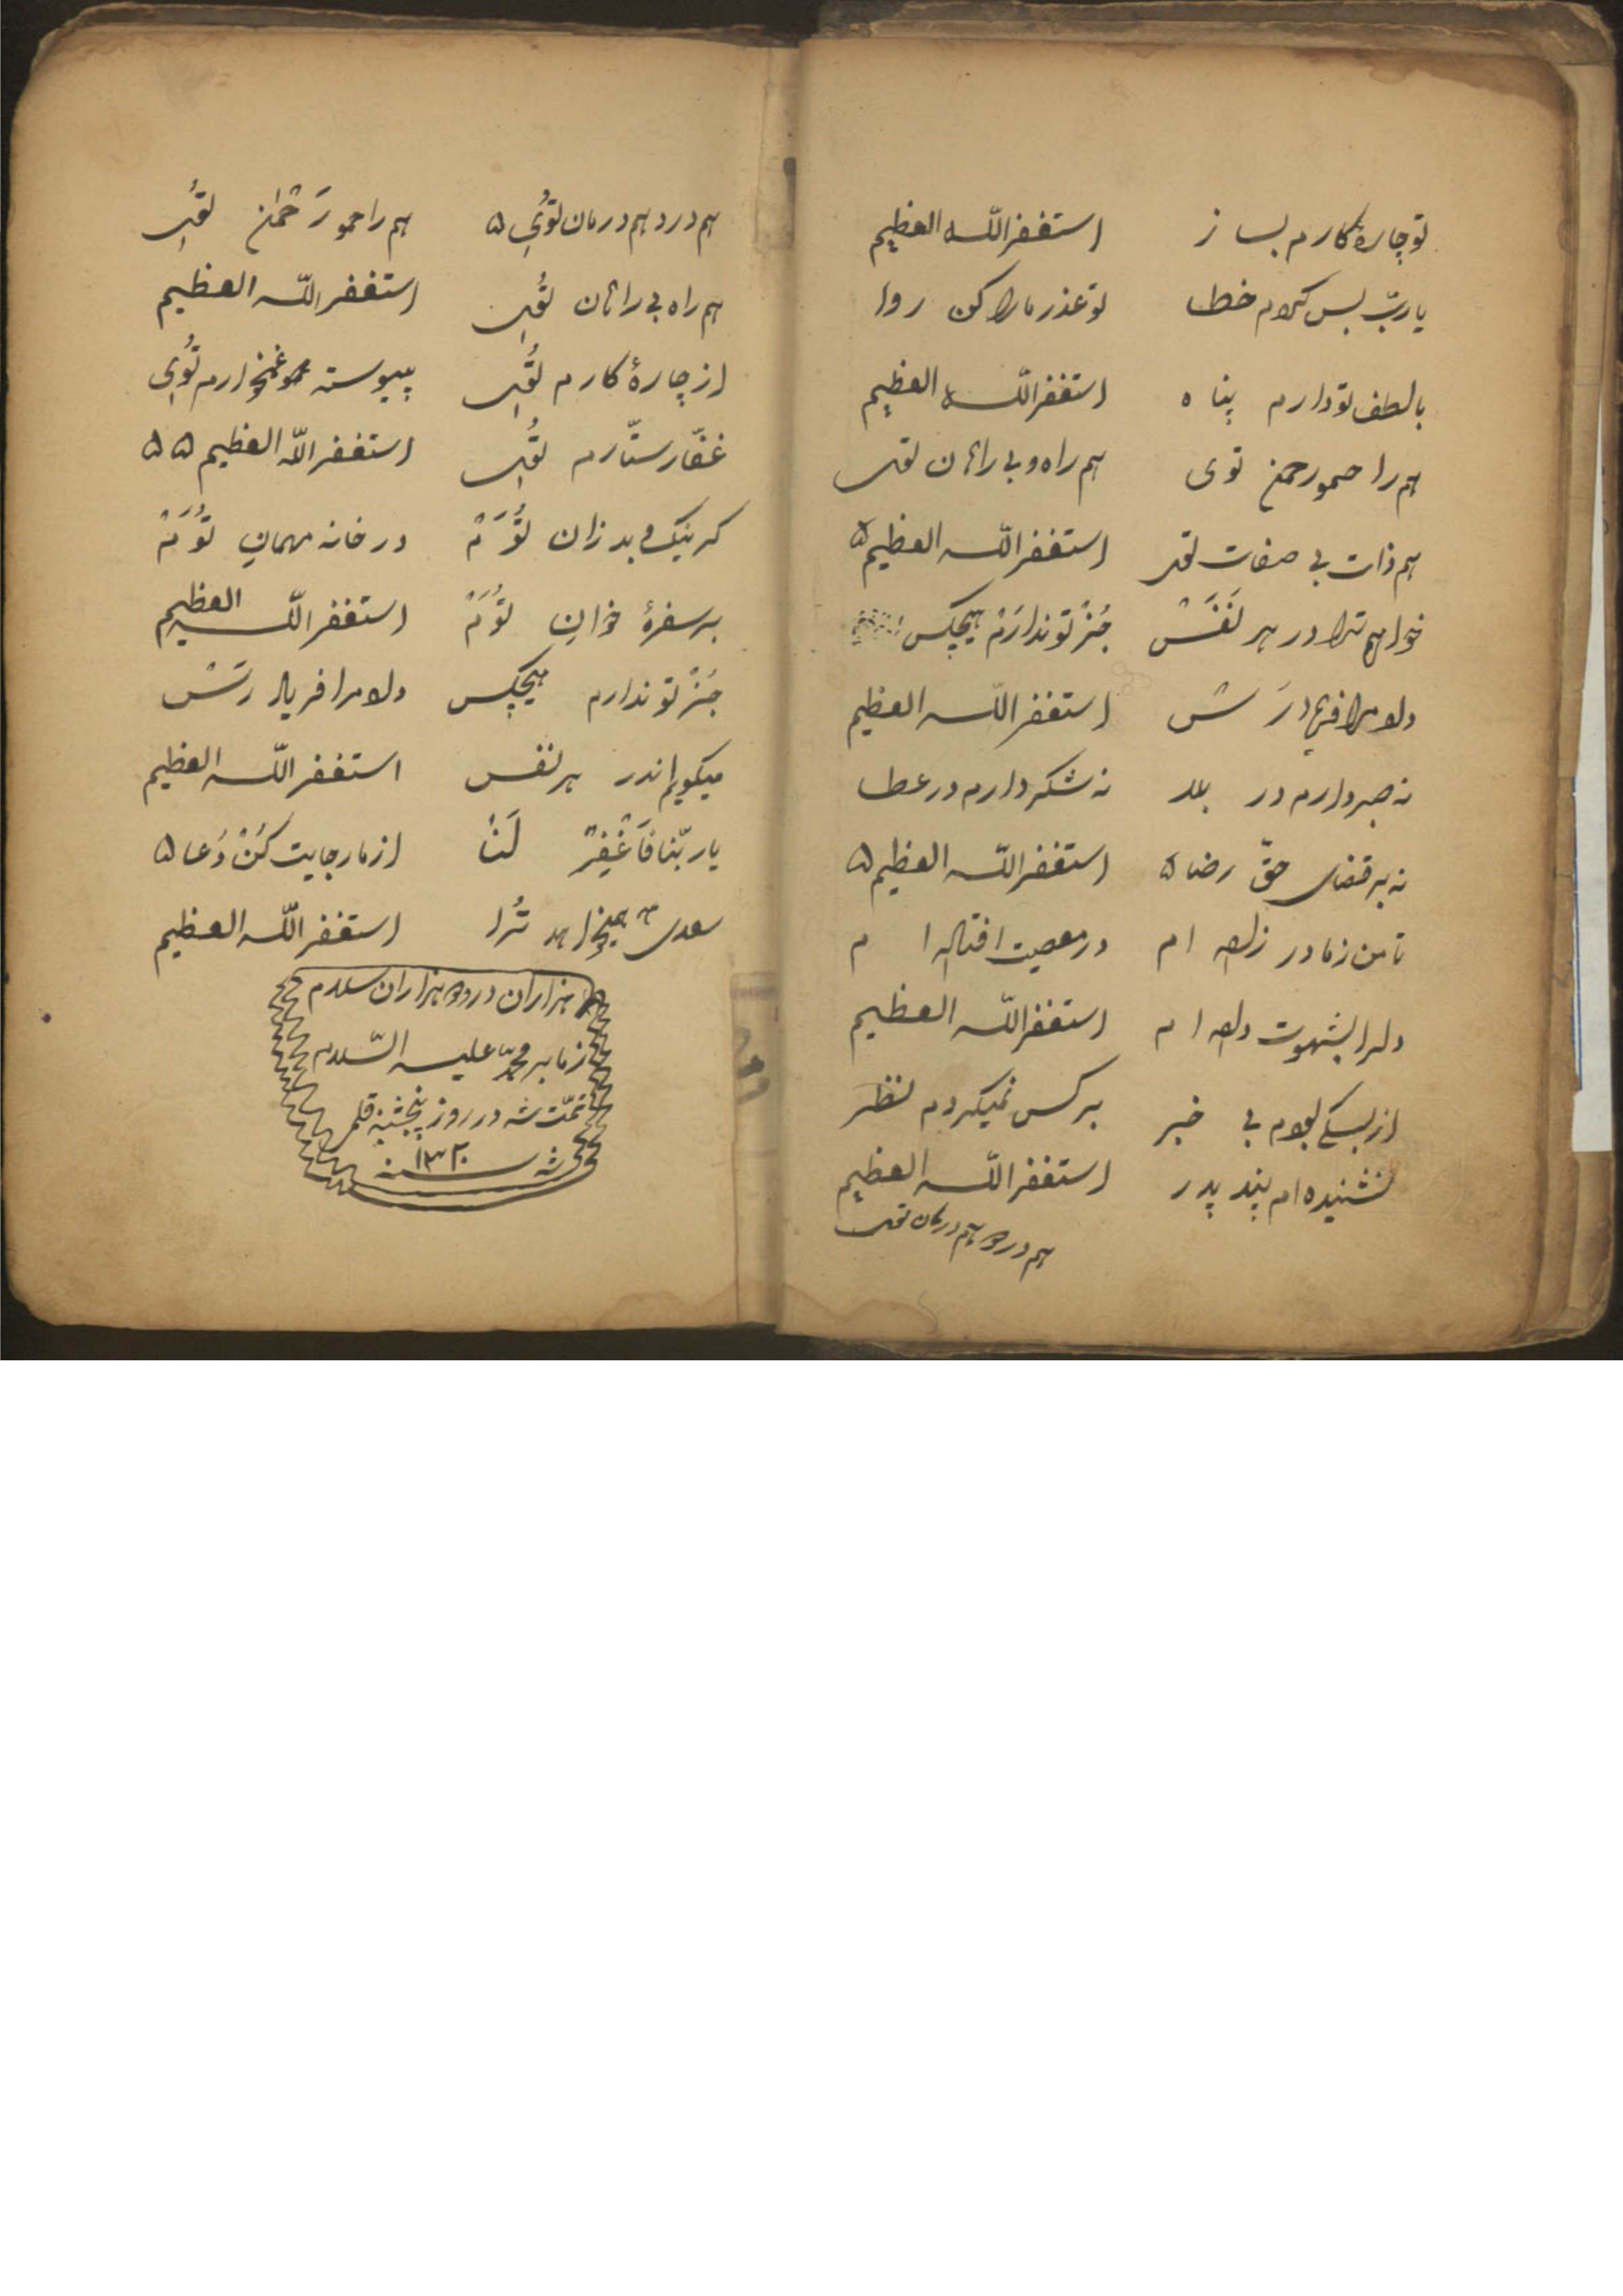 تو چارهٔ کارم بساز استغفر الله العظیم
یا رب بس کردم خطا تو عذر ما را کن روا
با لطف تو دارم پناه استغفر الله العظیم
هم راحم و رحمن توی هم راه و بی راهان توی
هم ذات بی صفات توی استغفر الله العظیم ۵
خواهم ترا در هر نَفَسْ جُزْ تو ندارَمْ هیچکس
دارم ترا فریاد رَسْ استغفر الله العظیم
نه صبر دارم در بلا نه شکر دارم در عطا
نه بر قضای حقّ رضا ۵ استغفر الله العظیم ۵
تا من ز مادر زاده ام در معصیت افتاده ام
دل را بشهوت داده ام استغفر الله العظیم
از بسکی بودم بی خبر بر کس نمیکردم نظر
نشنیده ام پند پدر استغفر الله العظیم
هم درد و هم درمان توی
هم درد هم درمان تُویِ ۵ هم راحم و رَحْمٰن تُویِ
هم راه بی راهان تُویِ استغفر الله العظیم
از چارهٔ کارم تُویِ پیوسته غمخوارم تُویِ
غفّار ستّارم تُویِ استغفر الله العظیم ۵۵
گر نیک و بد زان تُوَمْ در خانه مهمانِ تُوَمْ
بر سفرهٔ خوانِ تُوَمْ استغفر الله العظیم
جُزْ تو ندارم هیچکس دارم ترا فریاد رَسْ
میکویم اندر هر نفس استغفر الله العظیم
یا ربّنا فَاغْفِرْ لَنا از ما رجایت کُنْ دُعا ۵
سعدی همیخواهد تُرا استغفر الله العظیم
هزاران درود هزاران سلام
ز ما بر محمّد علیه السّلام
تمّت شد در روز پنجشنبه قلمی
شد سنه ۱۳۲۰